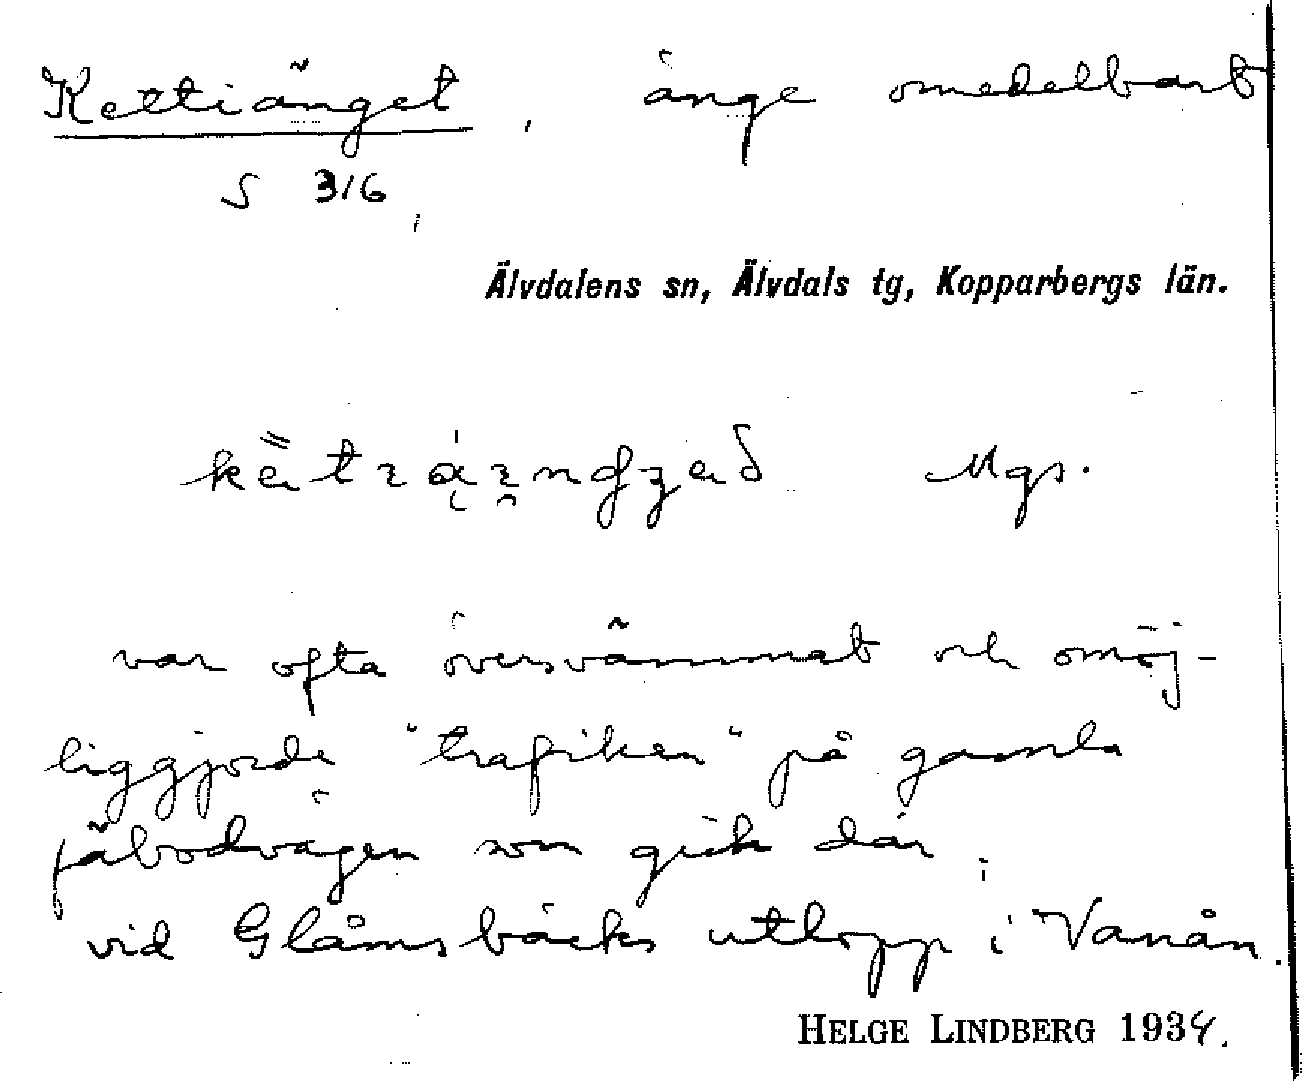 Kettiänget, änge omedelbart
S 316
Älvdalens sn, Älvdals tg, Kopparbergs län.
Mgs.
var ofta översvämmat och omöj-
liggjorde "trafiken" på gamla
fäbodvägen som gick där
vid Glåmsbäcks utlopp i Vanån.
HELGE LINDBERG 1934.